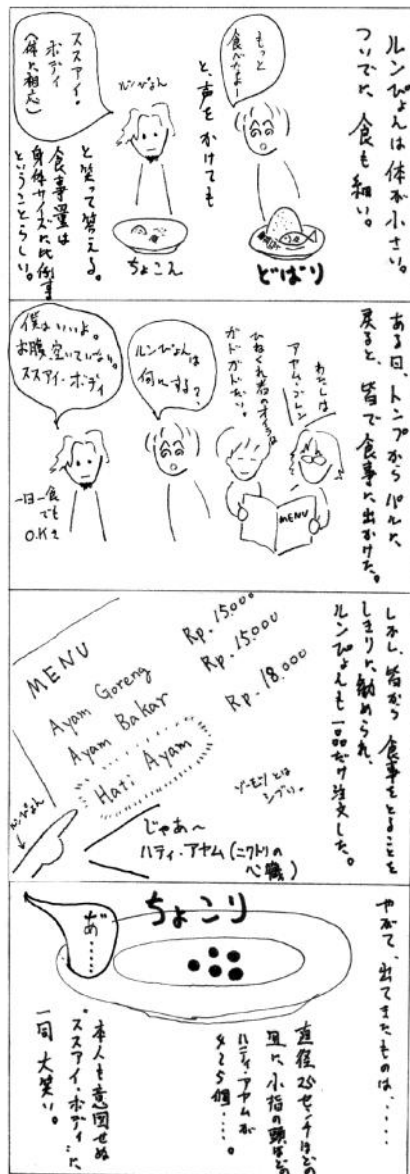 ルンぴょんは体が小さい。
ついでに、食も細い。
もっと
食べたよー
と、声をかけても
ルンぴょん
ススアイ・
ボディ
(体に相応)
どばり
ちょこん
と笑って答える。
食事量は
身体サイズに比例
ということらしい。
ある日、トンプからパルに
戻ると、皆で食事に出かけた。
わたしは
アヤム・ゴレン
ひねくれ者のオイラは
ガドガドだい。
MENU
ルンぴょんは
何にする?
僕はいいよ。
お腹空いていない。
ススアイ・ボディ
一日一食
でも
O.Kさ
しかし、皆から食事をとることを
しきりに勧められ、
ルンぴょんも一品だけ注文した。
MENU
Ayam Goreng Rp. 15.000
Ayam Bakar Rp. 15.000
Hati Ayam Rp. 18.000
ゾーモツとは
シブい。
ルンぴょん
じゃあ〜
ハティ・アヤム(ニワトリの
心臓)
やがて、出てきたものは、・・・・・・
ちょこり
あ゛
・・・・・・
直径25センチほどの
皿に、小指の頭ほどの
ハティ・アヤムが
4〜5個・・・・。
本人も意図せぬ
"ススアイ・ボディ"に
一同大笑い。